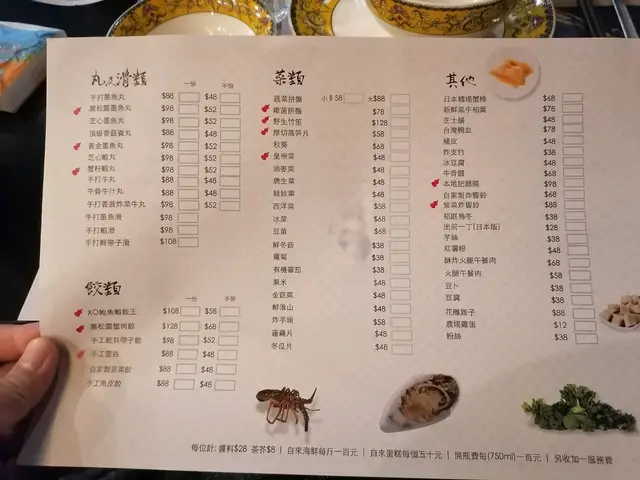 丸及滑類
一份 半份
手打墨魚丸 $88 $48
黑松露墨魚丸 $98 $52
芝心墨魚丸 $98 $52
頂級香菇貢丸 $88 $48
黃金墨魚丸 $98 $52
芝心蝦丸 $98 $52
蟹籽蝦丸 $98 $52
手打牛丸 $88 $48
牛骨牛汁丸 $88 $48
手打香茜炸菜牛丸 $98 $52
手打墨魚滑 $98
手打蝦滑 $98
手打鮮帶子滑 $108
餃類
一份 半份
XO鮑魚蝦餃王 $108 $58
黑松露蟹肉餃 $128 $68
手工乾貝帶子餃 $98 $52
手工雲吞 $88 $48
自家製韮菜餃 $88 $48
手工魚皮餃 $88 $48
菜類
蔬菜拼盤 小$58 大$88
雜菌拼盤 $78
野生竹笙 $128
厚切萵笋片 $58
秋葵 $68
皇帝菜 $48
油麥菜 $48
唐生菜 $48
娃娃菜 $48
西洋菜 $58
冰菜 $68
豆苗 $68
鮮冬菇 $38
蘿蔔 $38
有機蕃茄 $38
粟米 $48
金菇菜 $48
鮮淮山 $48
炸芋頭 $58
蓮藕片 $48
冬瓜片 $48
其他
日本鱈場蟹棒 $68
新鮮黑牛柏葉 $78
芝士腸 $48
台灣鴨血 $78
豬皮 $48
炸支竹 $38
冰豆腐 $48
牛骨髓 $68
本地肥鵝腸 $98
自家製炸響鈴 $68
紫菜炸響鈴 $58
稻庭烏冬 $38
出前一丁(日本版) $28
芋絲 $38
紅薯粉 $48
酥炸火腿午餐肉 $68
火腿午餐肉 $58
豆卜 $38
豆腐 $38
花雕雞子 $88
農場雞蛋 $12
粉絲 $38
每位計: 醬料$28 茶芥$8 | 自來海鮮每斤一百元 | 自來蛋糕每個五十元 | 開瓶費每(750ml)一百元 | 另收加一服務費